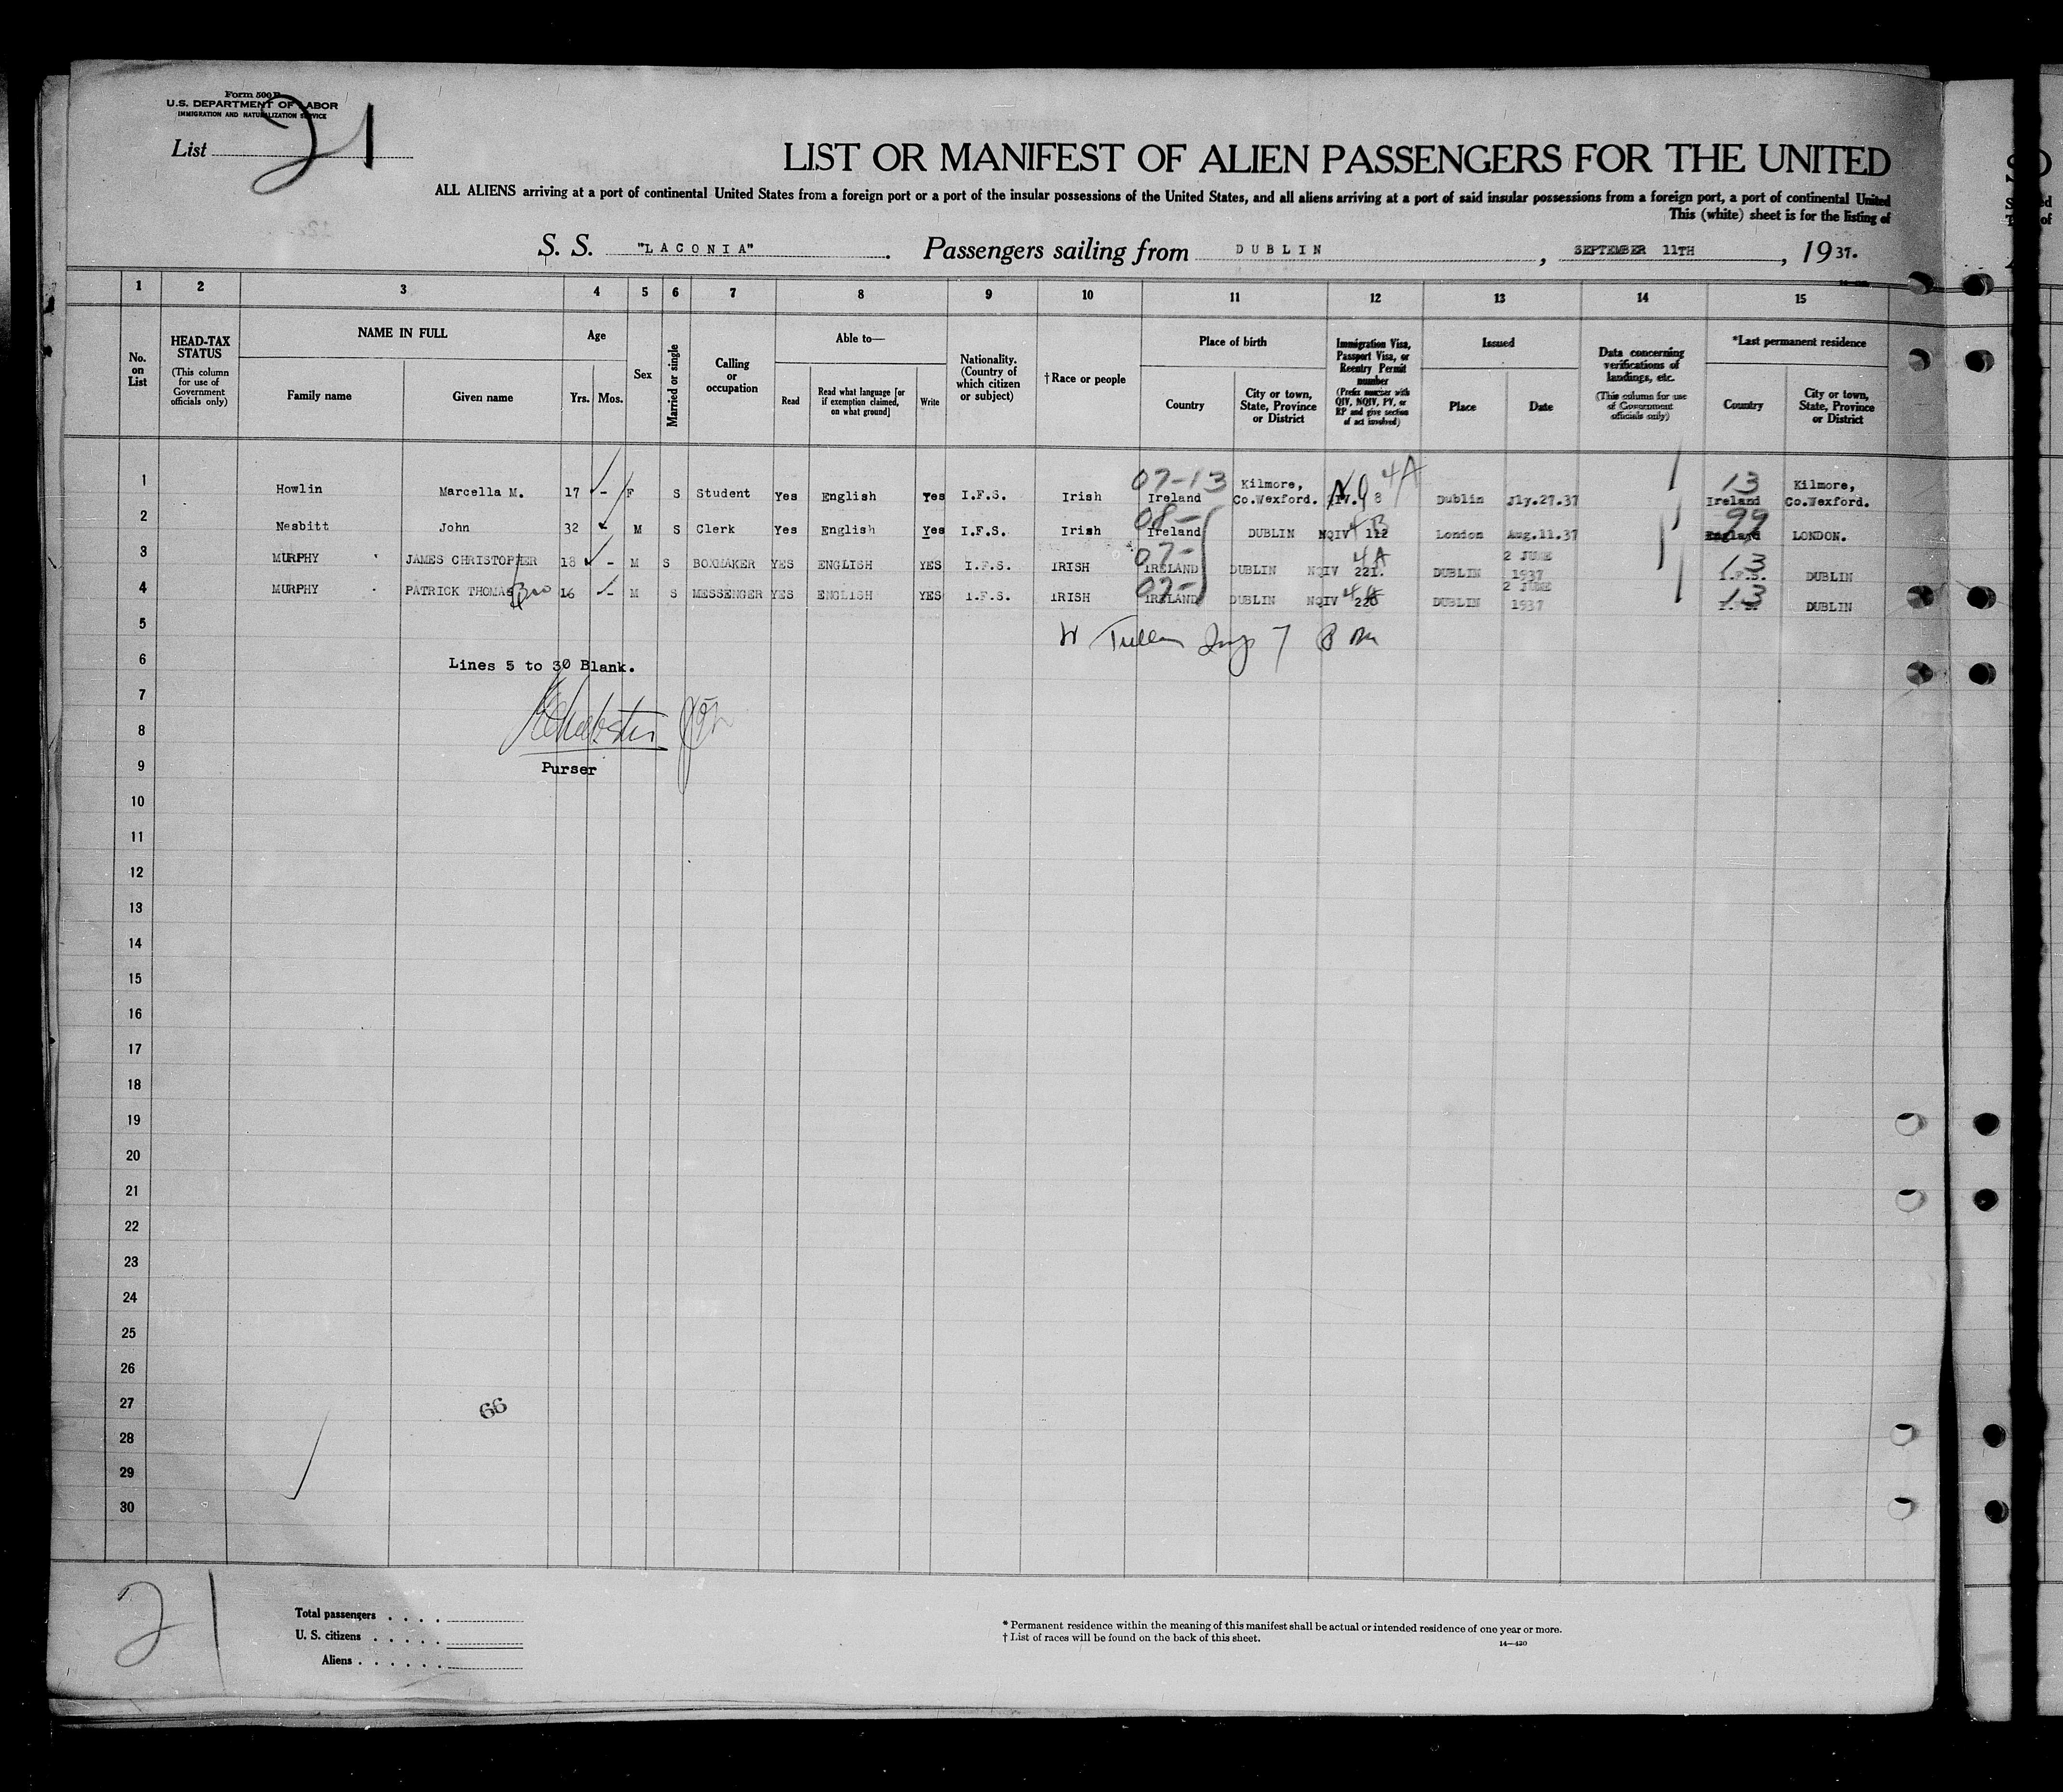 Form 500 B
U.S. DEPARTMENT OF LABOR
IMMIGRATION AND NATURALIZATION SERVICE
List 21
LIST OR MANIFEST OF ALIEN PASSENGERS FOR THE UNITED
ALL ALIENS arriving at a port of continental United States from a foreign port or a port of the insular possessions of the United States, and all aliens arriving at a port of said insular possessions from a foreign port, a port of continental United
This (white) sheet is for the listing of
S. S. "LACONIA". Passengers sailing from DUBLIN, SEPTEMBER 11TH, 1937.
1 2 3 4 5 6 7 8 9 10 11 12 13 14 15
No. on List
HEAD-TAX STATUS (This column for use of Government officials only)
NAME IN FULL
Family name Given name
Age
Yrs. Mos.
Sex
Married or single
Calling or occupation
Able to—
Read
Read what language [or if exemption claimed, on what ground]
Write
Nationality. (Country of which citizen or subject)
†Race or people
Place of birth
Country
City or town, State, Province or District
Immigration Visa, Passport Visa, or Reentry Permit number (Prefix number with QIV, NQIV, PV, or RP and give section of act involved)
Issued
Place Date
Data concerning verifications of landings, etc. (This column for use of Government officials only)
*Last permanent residence
Country
City or town, State, Province or District
07-13 4A 13
1 Howlin Marcella M. 17 - F S Student Yes English Yes I.F.S. Irish Ireland Kilmore, Co.Wexford. QIV. 8 Dublin Jly.27.37 Ireland Kilmore, Co.Wexford.
08- 4B 99
2 Nesbitt John 32 M S Clerk Yes English Yes I.F.S. Irish Ireland DUBLIN NQIV 112 London Aug.11.37 England LONDON.
07- 4A 13
3 MURPHY JAMES CHRISTOPHER 18 - M S BOXMAKER YES ENGLISH YES I.F.S. IRISH IRELAND DUBLIN NQIV 221. DUBLIN 2 JUNE 1937 I.F.S. DUBLIN
07- 4A 13
4 MURPHY PATRICK THOMAS Bro 16 - M S MESSENGER YES ENGLISH YES I.F.S. IRISH IRELAND DUBLIN NQIV 220 DUBLIN 2 JUNE 1937 I.F.S. DUBLIN
5
6 Lines 5 to 30 Blank.
7
8
9 Purser
10
11
12
13
14
15
16
17
18
19
20
21
22
23
24
25
26
27 66
28
29
30
21
Total passengers
U. S. citizens
Aliens
* Permanent residence within the meaning of this manifest shall be actual or intended residence of one year or more.
† List of races will be found on the back of this sheet.
14—420